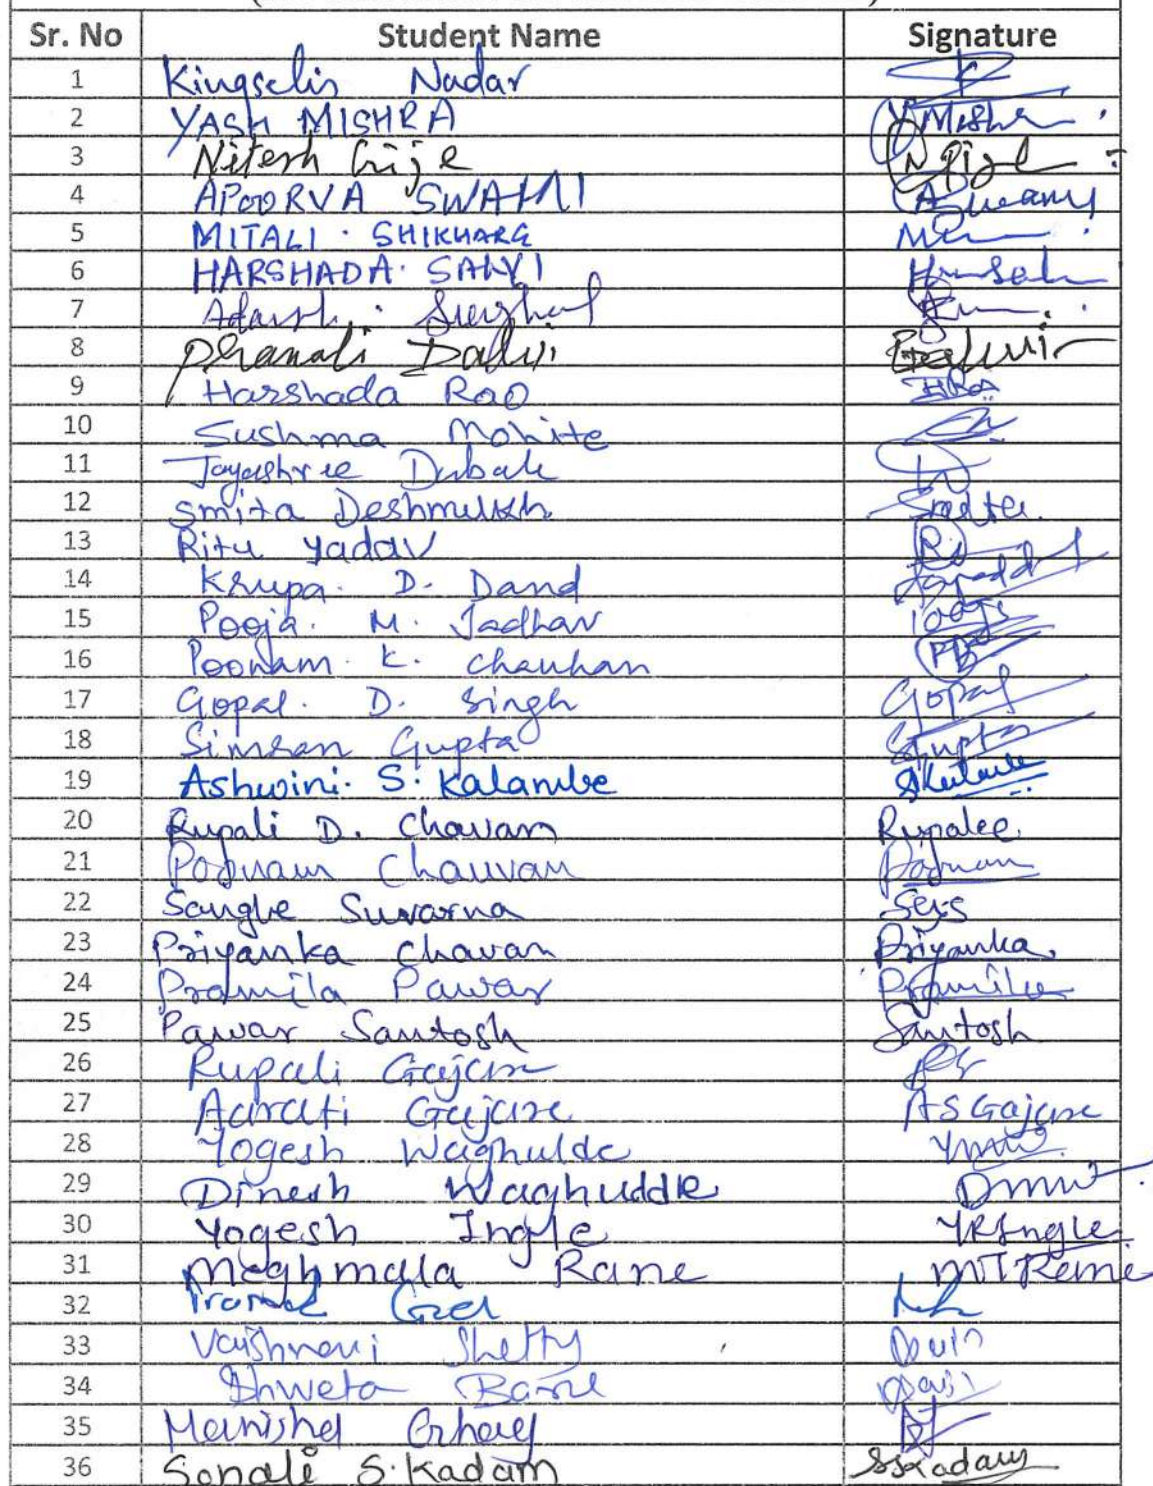 Sr. No Student Name Signature
1 Kingselin Nadar
2 YASH MISHRA YMishra
3 Nitesh Gije NGije
4 APOORVA SWAMI ASwamy
5 MITALI. SHIKHARE
6 HARSHADA. SALVI
7 Adarsh.
8 Pranali Dalvi
9 Harshada Rao HRao
10 Sushma Mohite
11 Jayashree Dabale
12 Smita Deshmukh
13 Ritu Yadav
14 Krupa. D. Dand
15 Pooja. M. Jadhav Pooja
16 Poonam. K. Chauhan
17 Gopal. D. Singh Gopal
18 Simran Gupta Gupta
19 Ashwini. S. Kalambe
20 Rupali D. Chavan Rupalee
21 Poonam Chauvan Poonam
22 Sangle Suvarna
23 Priyanka Chavan Priyanka
24 Pramila Pawar Pramila
25 Pawar Santosh Santosh
26 Rupali Gajare
27 Aarati Gajare AS Gajare
28 Yogesh Waghulde
29 Dinesh Waghuldle
30 Yogesh Ingle YRIngle
31 Meghmala Rane MTRane
32 Pramod
33 Vaishnavi Shetty
34 Shweta
35 Manisha
36 Sonali S. Kadam SSKadam